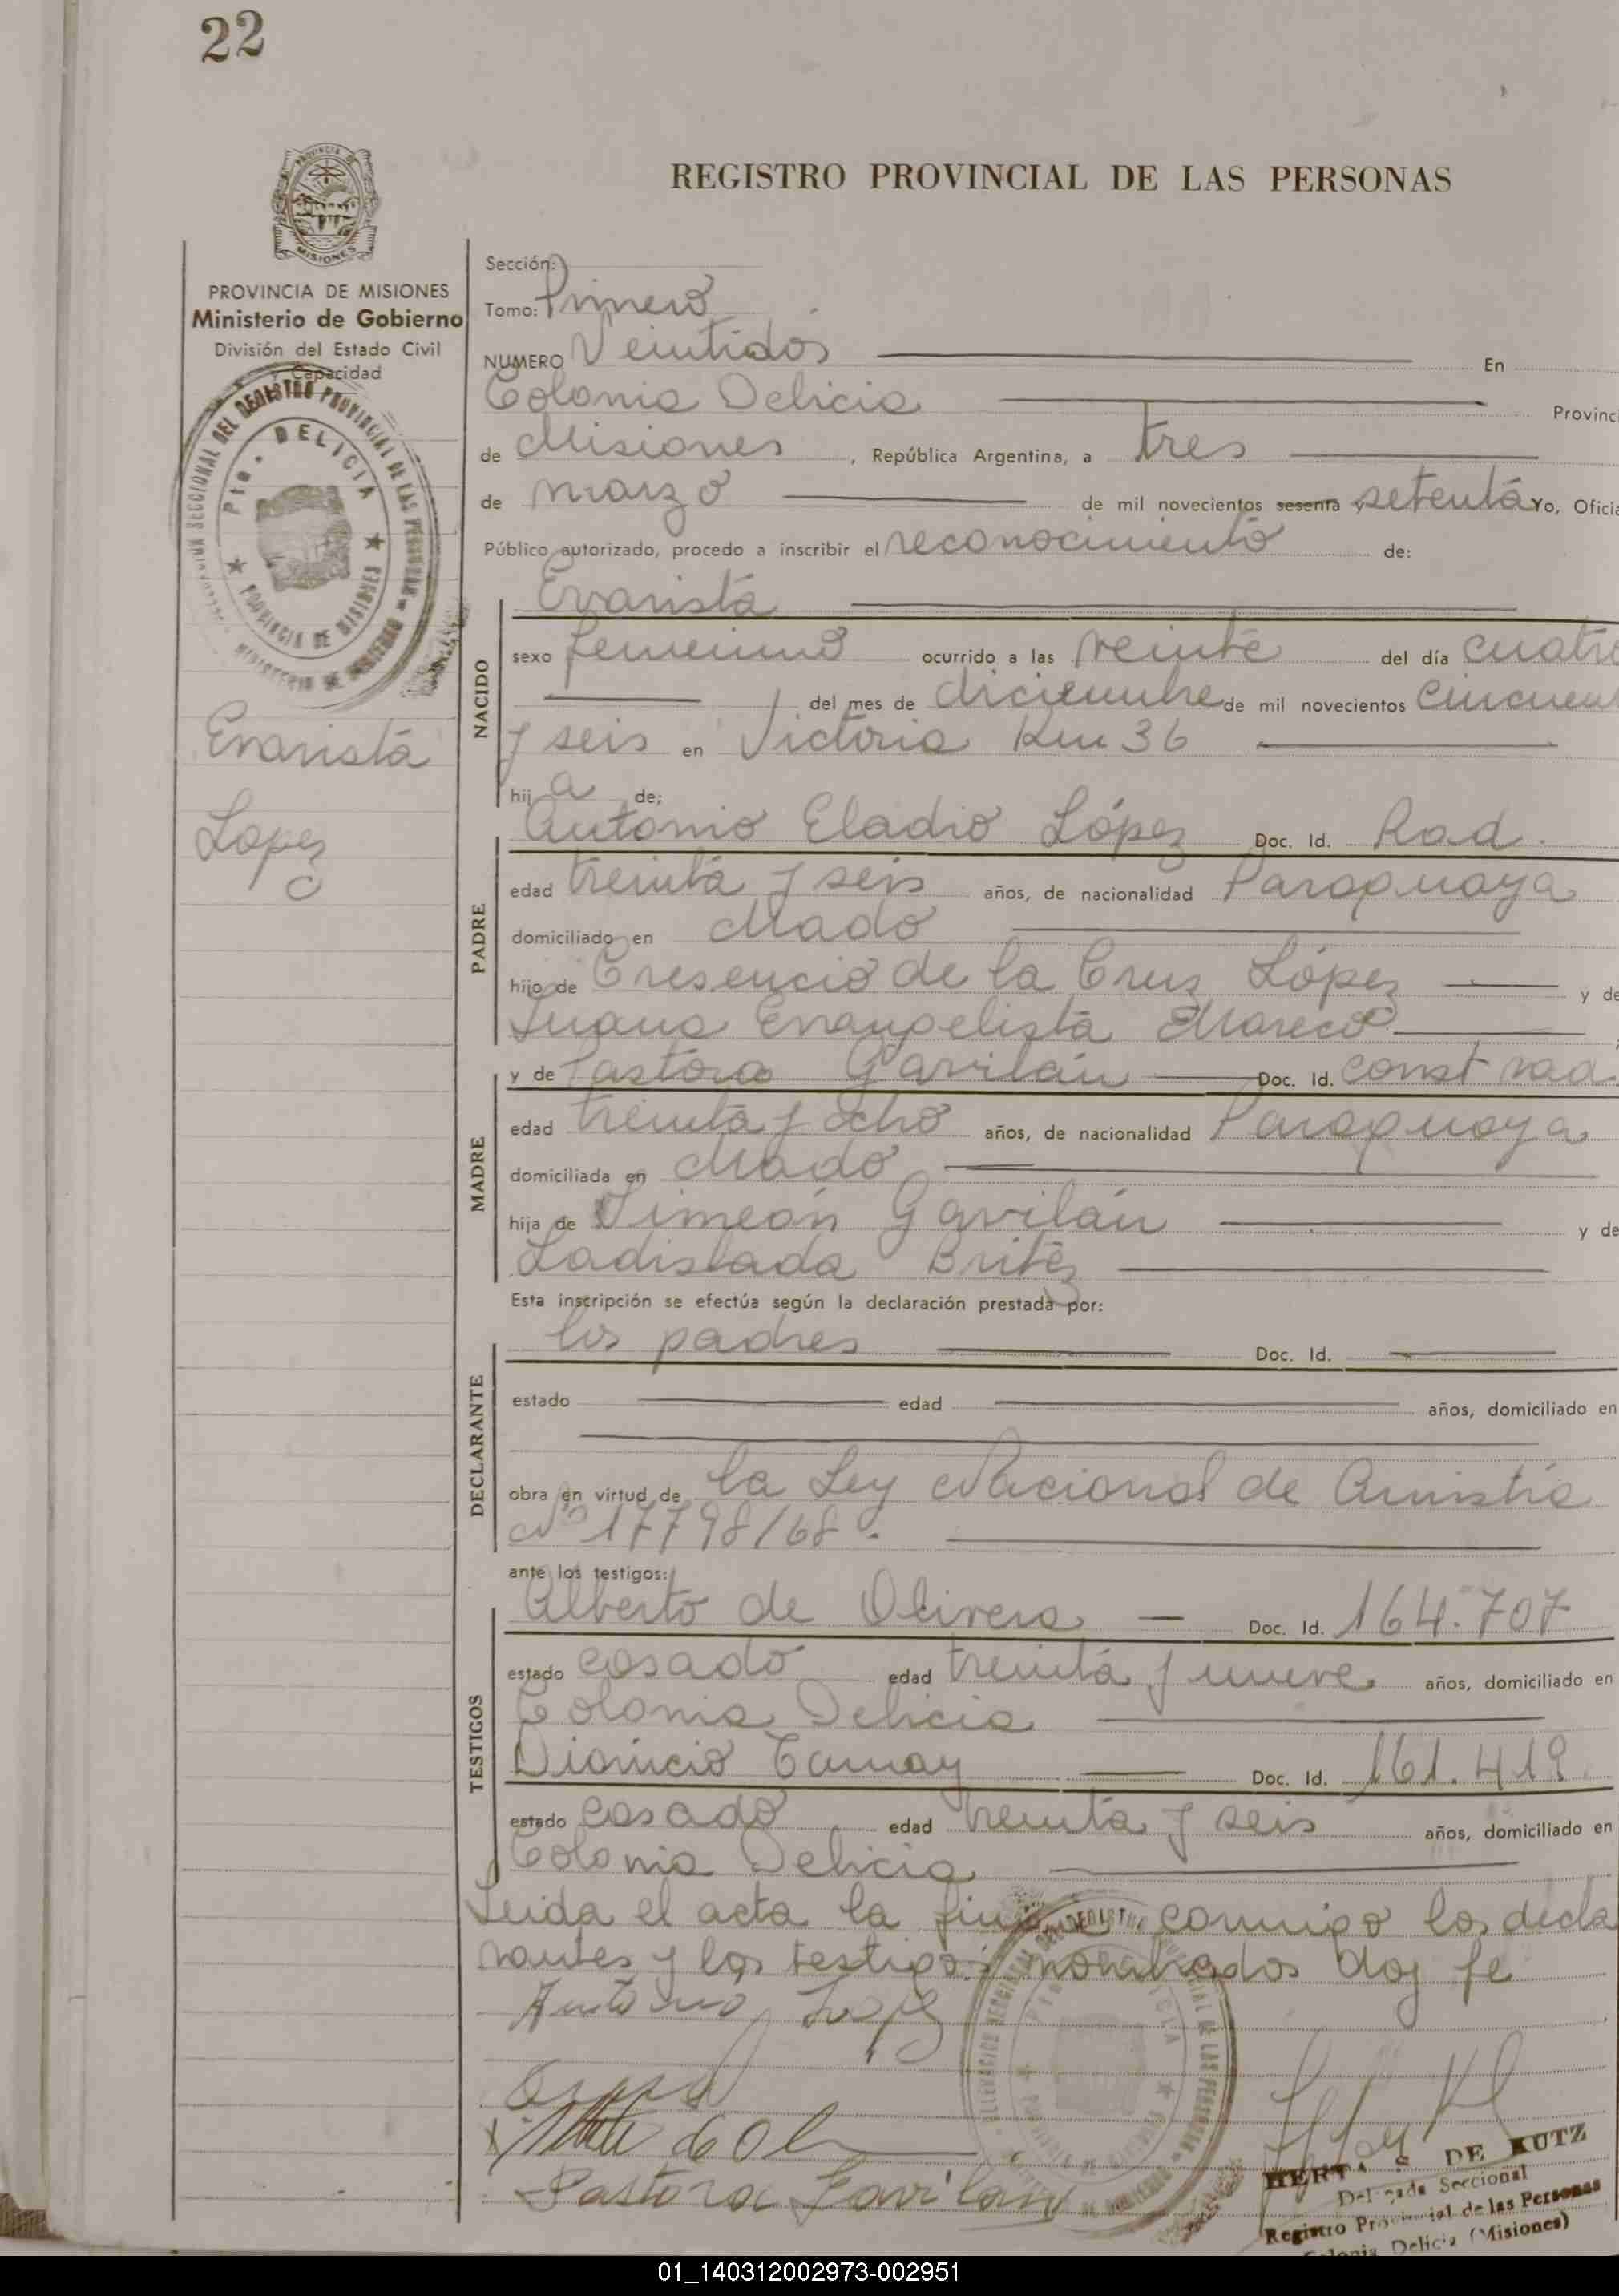 22
REGISTRO PROVINCIAL DE LAS PERSONAS
PROVINCIA DE
MISIONES
PROVINCIA DE MISIONES
Ministerio de Gobierno
División del Estado Civil
y Capacidad
Pto. DELICIA
PROVINCIA DE MISIONES
Evarista
Lopez
Sección:
Tomo: Primero
NUMERO Veintidós En
Colonia Delicia Provinc
de Misiones, República Argentina, a tres
de marzo de mil novecientos sesenta y setenta Yo, Oficia
Público autorizado, procedo a inscribir el reconocimiento de:
NACIDO
Evarista
sexo femenino ocurrido a las veinte del día cuatro
del mes de diciembre de mil novecientos cincuen
y seis en Victoria Km 36
hij a de:
PADRE
Antonio Eladio López Doc. Id. Rad.
edad treinta y seis años, de nacionalidad Paraguaya
domiciliado en Mado
hijo de Cresencio de la Cruz López y de
Juana Evangelista Mareco
MADRE
y de Pastora Gavilán Doc. Id. const rad.
edad treinta y ocho años, de nacionalidad Paraguaya
domiciliada en Mado
hija de Simeón Gavilán y de
Ladislada Britez
Esta inscripción se efectúa según la declaración prestada por:
DECLARANTE
los padres Doc. Id.
estado edad años, domiciliado en
obra en virtud de la Ley Nacional de Amnistía
Nº 17798/68.
ante los testigos:
TESTIGOS
Alberto de Olivera Doc. Id. 164.707
estado casado edad treinta y nueve años, domiciliado en
Colonia Delicia
Dionicio Doc. Id. 161.419
estado casado edad treinta y seis años, domiciliado en
Colonia Delicia
Leida el acta la conmigo los decla
rantes y los testigos nombrados doy fe
Antonio Lopez
Pastora Gavilan
HERTA S DE KUTZ
Delegada Seccional
Registro Provincial de las Personas
Colonia Delicia (Misiones)
01_140312002973-002951